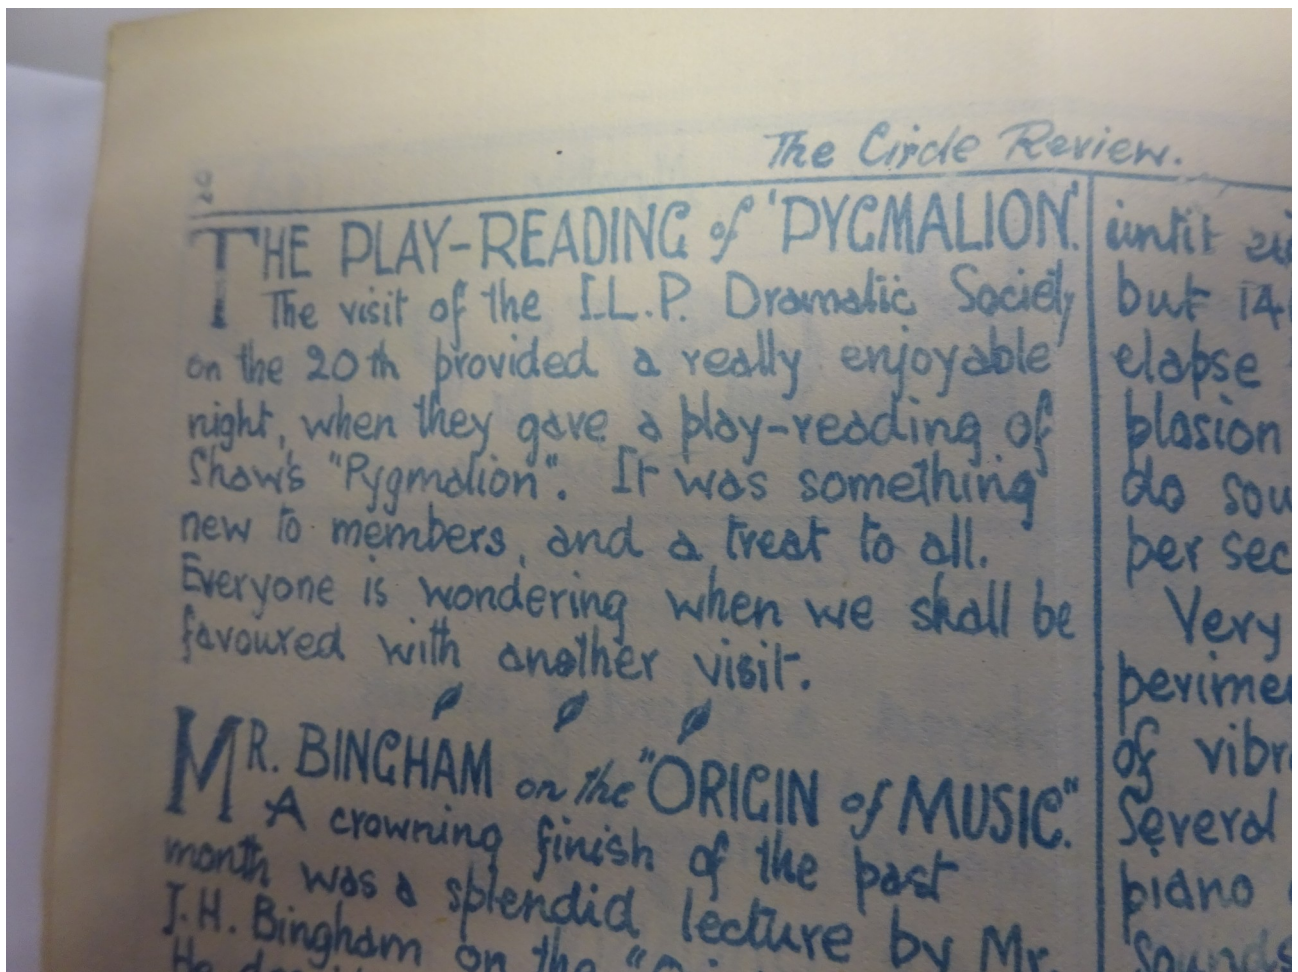 The Circle Review.
20
THE PLAY-READING of 'PYGMALION'.
The visit of the I.L.P. Dramatic Society
on the 20th provided a really enjoyable
night, when they gave a play-reading of
Shaw's "Pygmalion". It was something
new to members, and a treat to all.
Everyone is wondering when we shall be
favoured with another visit.
MR. BINGHAM on the "ORIGIN of MUSIC."
A crowning finish of the past
month was a splendid lecture by Mr.
J.H. Bingham on the
He
until
but 14
elapse
plosion
do sou
per sec
Very
perimen
of vibr
Several
piano
sounds